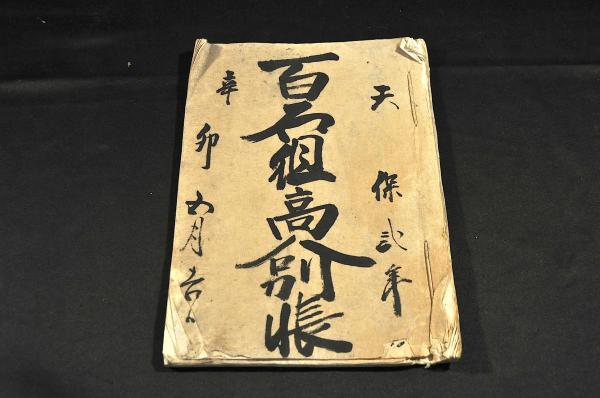 天保弐年
百石組高別帳
辛卯五月吉日